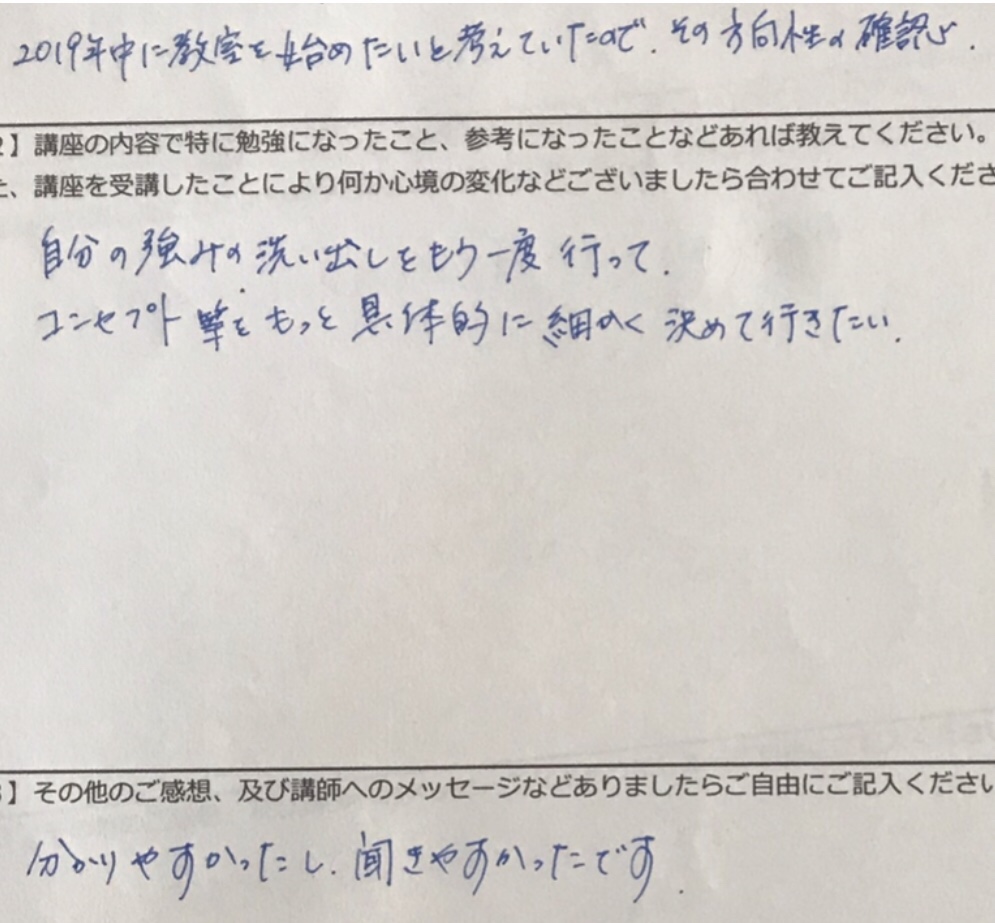 2019年中に教室を始めたいと考えていたので、その方向性の確認。
2】講座の内容で特に勉強になったこと、参考になったことなどあれば教えてください。
た、講座を受講したことにより何か心境の変化などございましたら合わせてご記入くださ
自分の強みの洗い出しをもう一度行って、
コンセプト等をもっと具体的に細かく決めて行きたい。
3】その他のご感想、及び講師へのメッセージなどありましたらご自由にご記入ください
分かりやすかったし、聞きやすかったです。